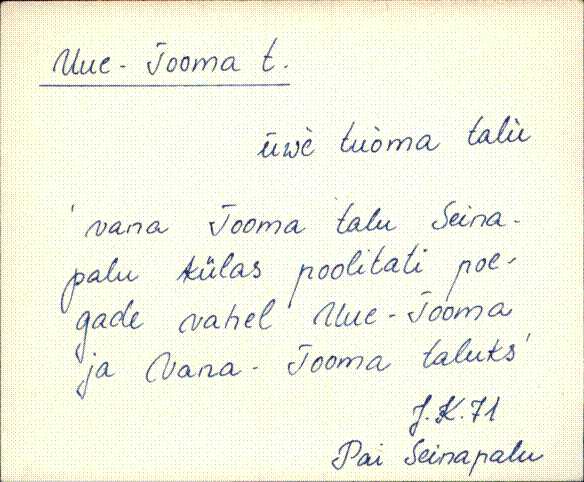 Uue-Tooma t.
ūwè tuòma talù
'vana Tooma talu Seina-
palu külas poolitati poe-
gade vahel Uue-Tooma
ja Vana-Tooma taluks'
J.K.71
Pai Seinapalu